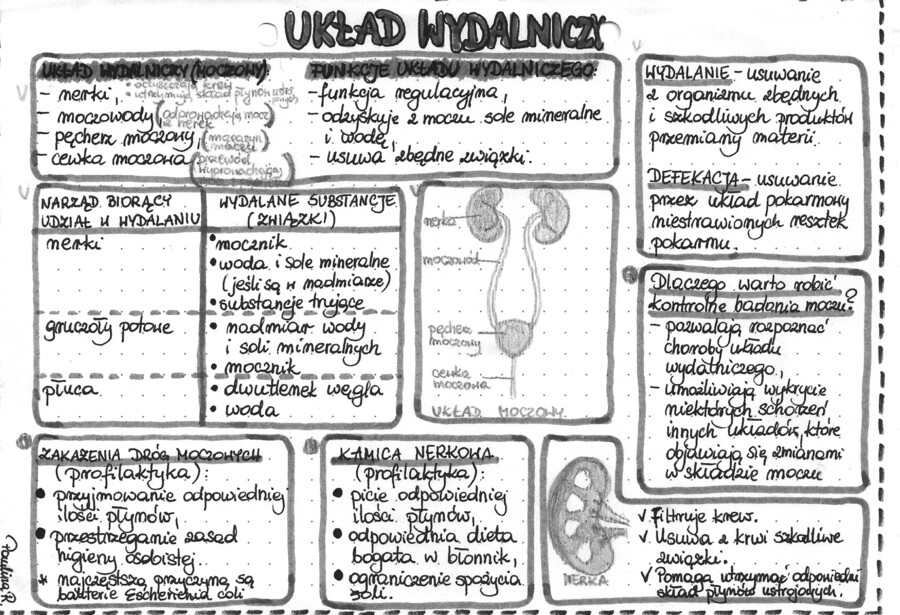 UKŁAD WYDALNICZY
UKŁAD WYDALNICZY (MOCZOWY)
- nerki,
• oczyszczają krew
• utrzymują skład płynów ustrojowych
- moczowody (odprowadzają mocz
z nerek)
- pęcherz moczowy, (magazyn
moczu)
- cewka moczowa (przewód
wyprowadzający
FUNKCJE UKŁADU WYDALNICZEGO:
- funkcja regulacyjna,
- odzyskuje z moczu sole mineralne
i wodę,
- usuwa zbędne związki.
WYDALANIE - usuwanie
z organizmu zbędnych
i szkodliwych produktów
przemiany materii.
DEFEKACJA - usuwanie
przez układ pokarmowy
niestrawionych resztek
pokarmu.
NARZĄD BIORĄCY
UDZIAŁ W WYDALANIU
WYDALANE SUBSTANCJE
(ZWIĄZKI)
nerki
• mocznik
• woda i sole mineralne
(jeśli są w nadmiarze)
• substancje trujące
gruczoły potowe
• nadmiar wody
i soli mineralnych
• mocznik
płuca
• dwutlenek węgla
• woda
nerka
moczowód
pęcherz
moczowy
cewka
moczowa
UKŁAD MOCZOWY
Dlaczego warto robić
kontrolne badania moczu?
- pozwalają rozpoznać
choroby układu
wydalniczego,
- umożliwiają wykrycie
niektórych schorzeń
innych układów, które
objawiają się zmianami
w składzie moczu
ZAKAŻENIA DRÓG MOCZOWYCH
(profilaktyka):
• przyjmowanie odpowiedniej
ilości płynów,
• przestrzeganie zasad
higieny osobistej.
* najczęstszą przyczyną są
bakterie Escherichia coli
KAMICA NERKOWA
(profilaktyka):
• picie odpowiedniej
ilości płynów,
• odpowiednia dieta
bogata w błonnik,
• ograniczenie spożycia
soli.
NERKA
√ Filtruje krew.
√ Usuwa z krwi szkodliwe
związki.
√ Pomaga utrzymać odpowiedni
skład płynów ustrojowych.
Paulina R.